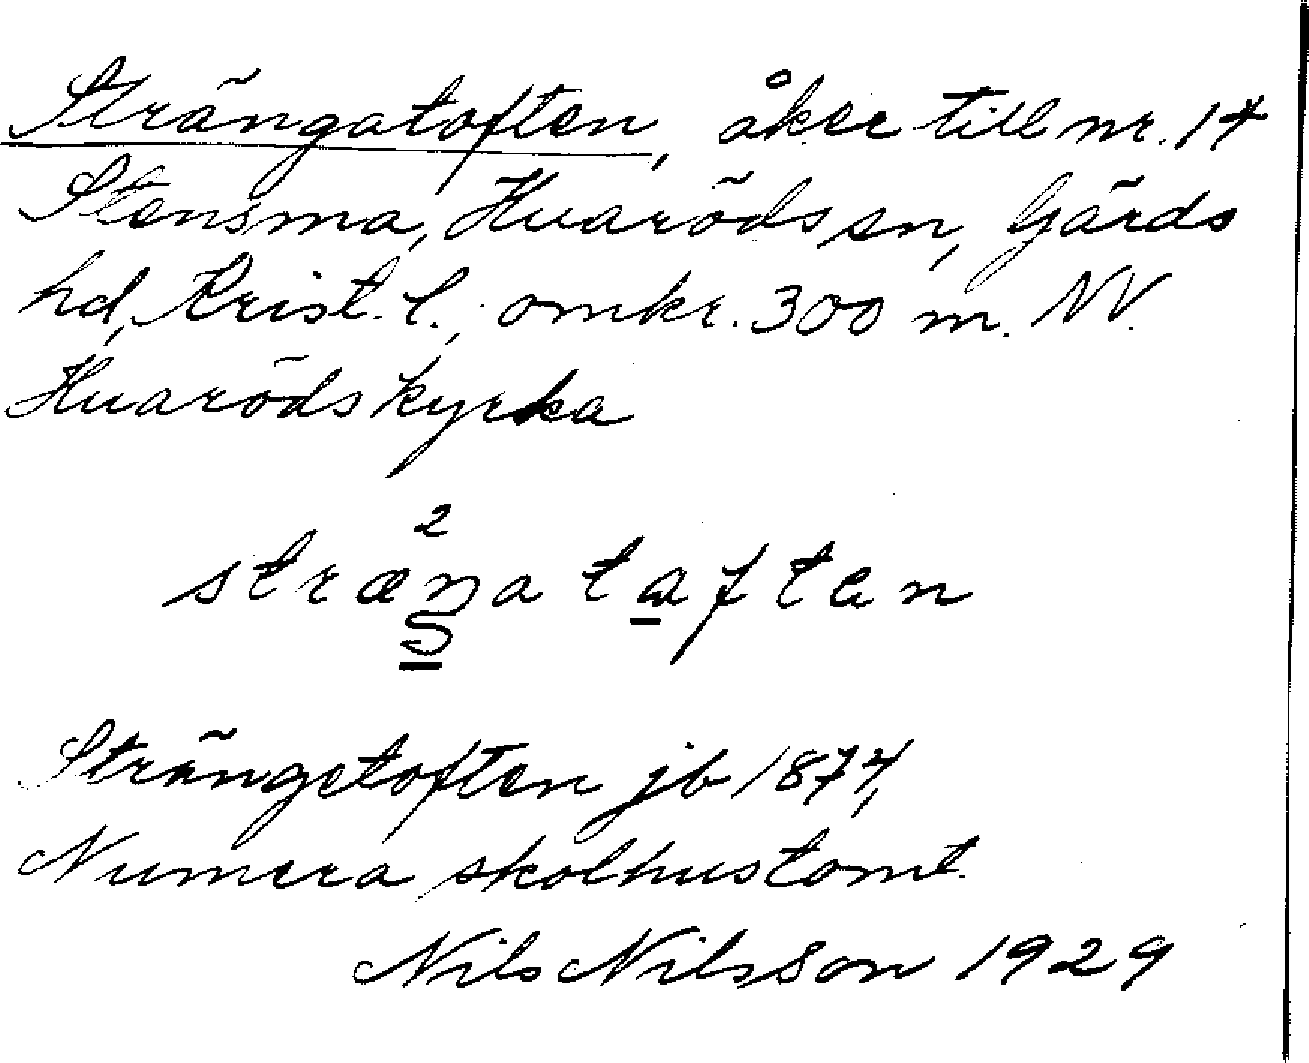 Strängatoften, åker till nr. 17
Stensma, Huaröds sn, Gärds
hd, Krist. l., omkr. 300 m. NV.
Huaröds kyrka
2
stræŋatɑften
S
Strängetoften jb 1877,
Numera skolhustomt.
Nils Nilsson 1929